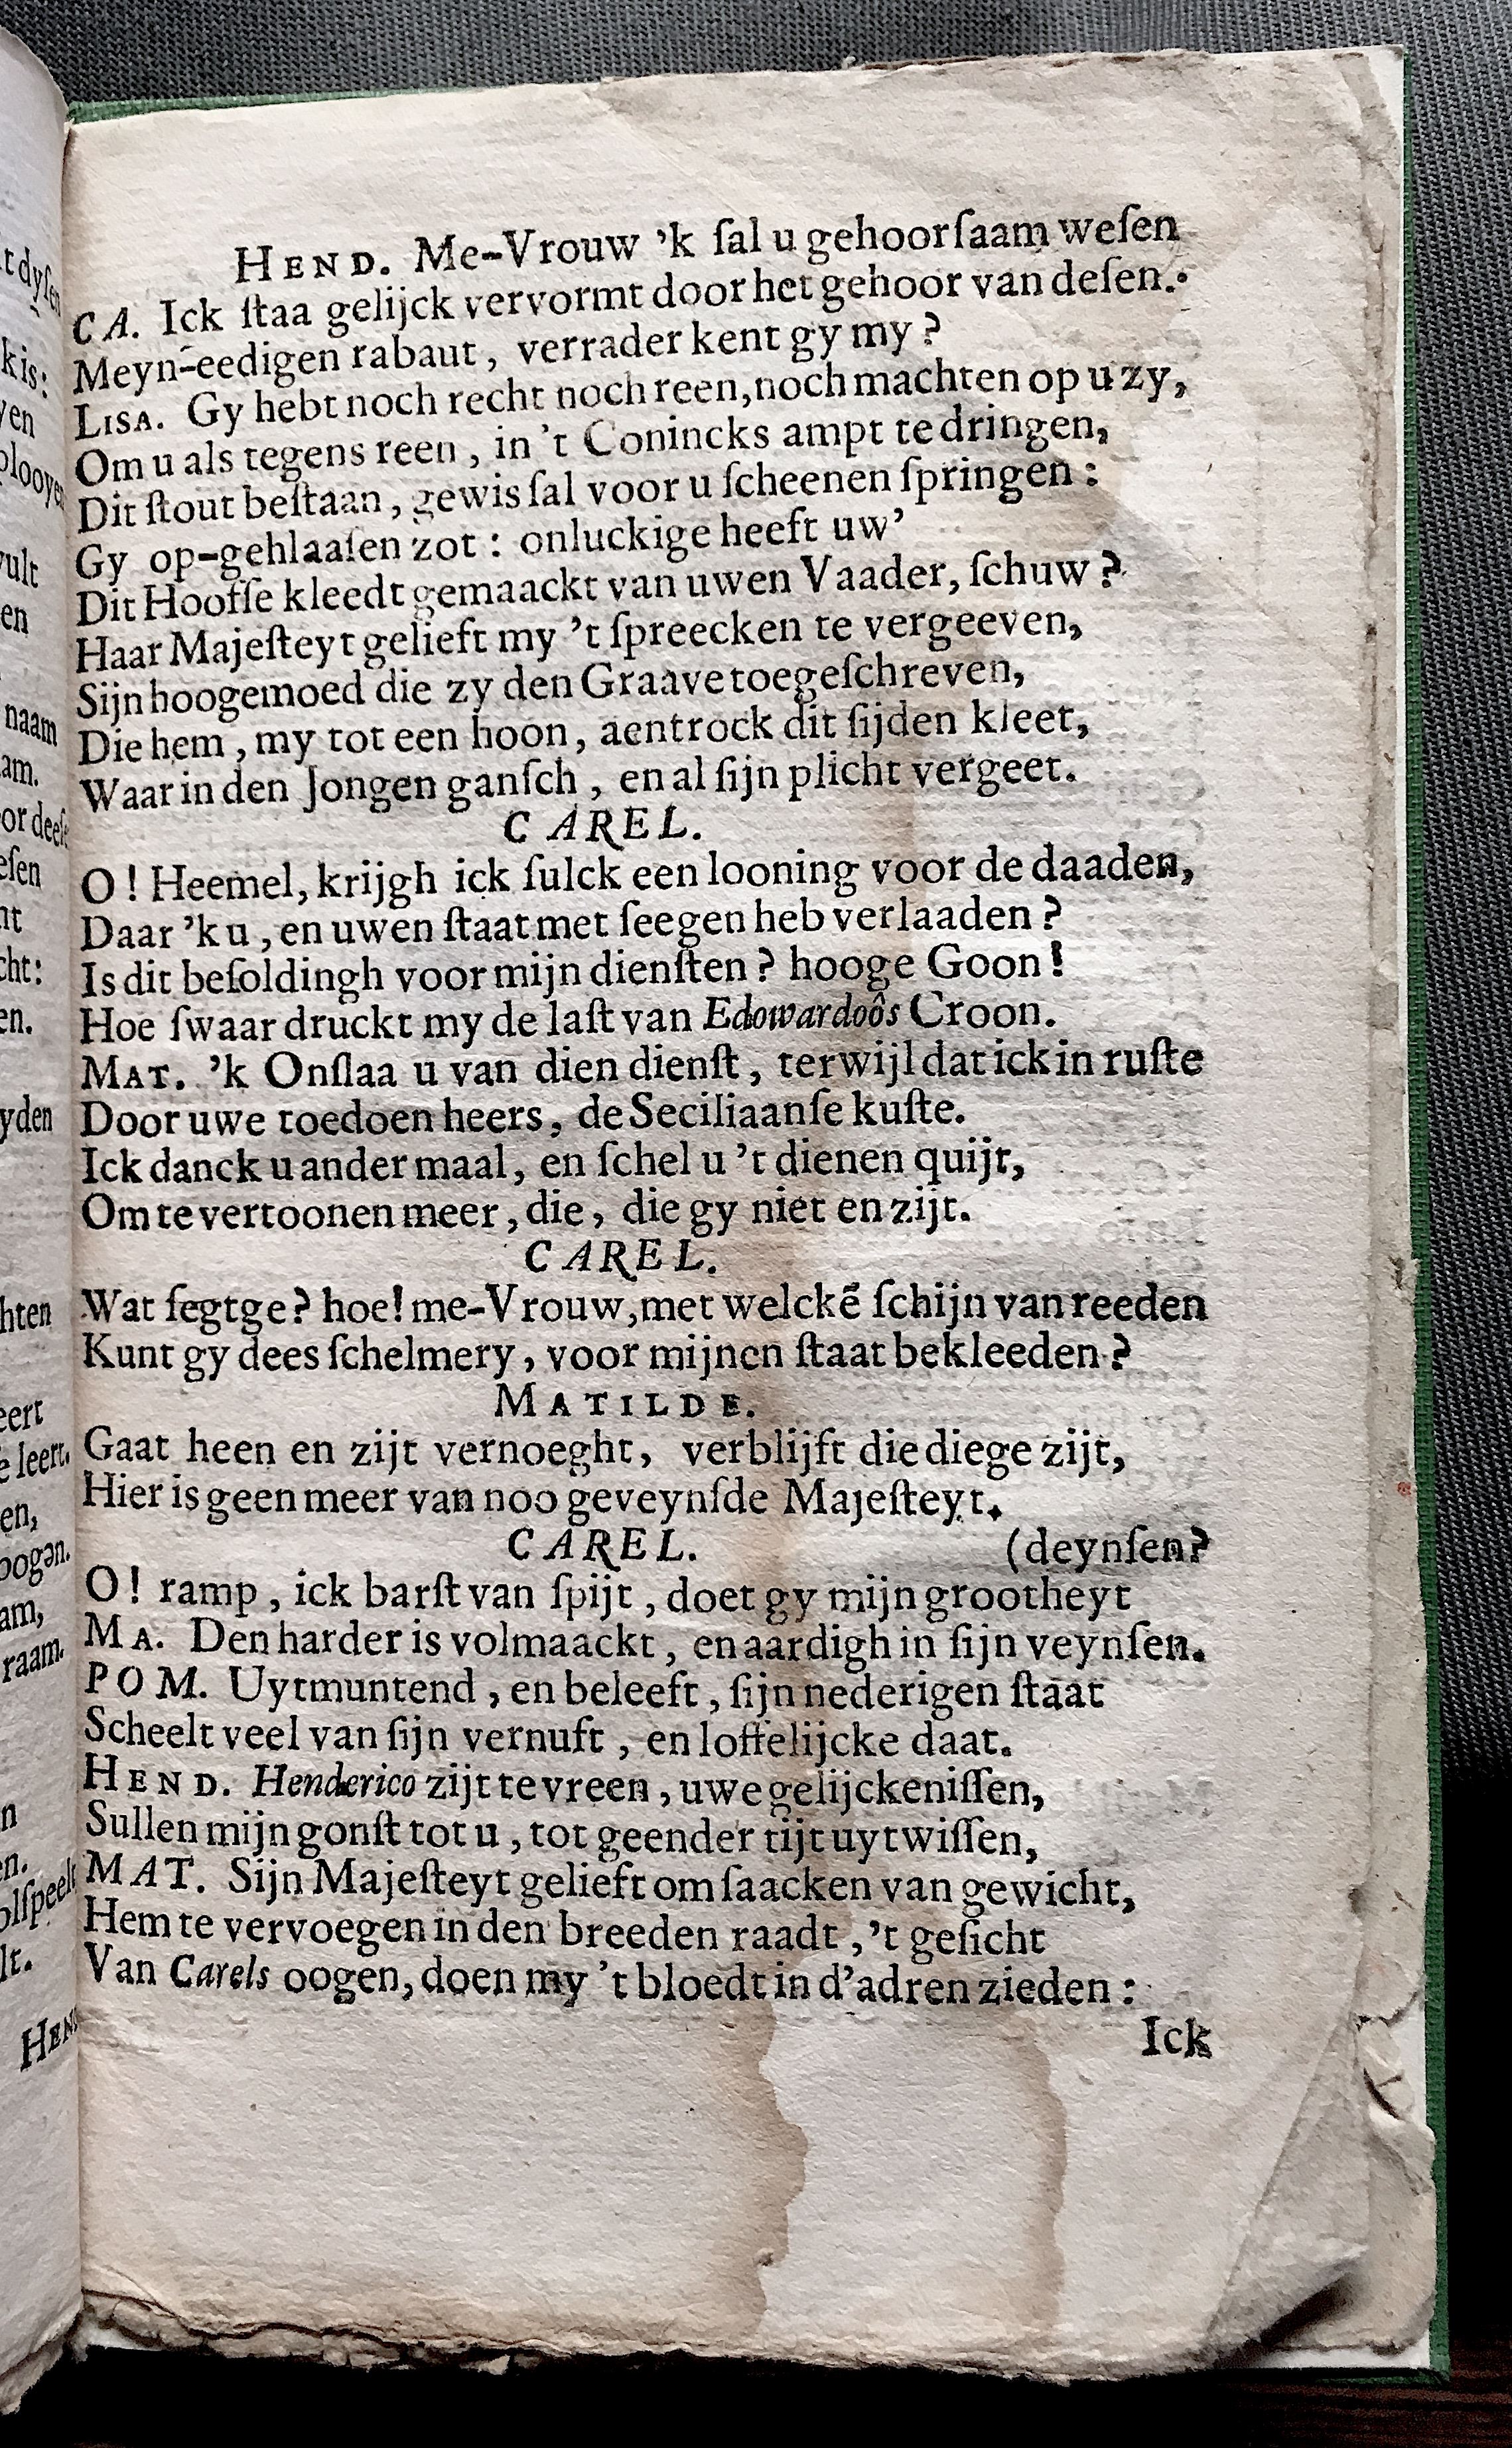 HEND. Me-Vrouw 'k ſal u gehoorſaam weſen
CA. Ick ſtaa gelijck vervormt door het gehoor van deſen.
Meyn-eedigen rabaut, verrader kent gy my?
LISA. Gy hebt noch recht noch reen, noch machten op u zy,
Om u als tegens reen, in 't Conincks ampt te dringen,
Dit ſtout beſtaan, gewis ſal voor u ſcheenen ſpringen:
Gy op-gehlaaſen zot: onluckige heeft uw'
Dit Hooffe kleedt gemaackt van uwen Vaader, ſchuw?
Haar Majeſteyt gelieft my 't ſpreecken te vergeeven,
Sijn hoogemoed die zy den Graave toegeſchreven,
Die hem, my tot een hoon, aentrock dit ſijden kleet,
Waar in den Jongen ganſch, en al ſijn plicht vergeet.
CAREL.
O! Heemel, krijgh ick ſulck een looning voor de daaden,
Daar 'k u, en uwen ſtaat met ſeegen heb verlaaden?
Is dit beſoldingh voor mijn dienſten? hooge Goon!
Hoe ſwaar druckt my de laſt van Edowardoôs Croon.
MAT. 'k Onſlaa u van dien dienſt, terwijl dat ick in ruſte
Door uwe toedoen heers, de Seciliaanſe kuſte.
Ick danck u ander maal, en ſchel u 't dienen quijt,
Om te vertoonen meer, die, die gy niet en zijt.
CAREL.
Wat ſegtge? hoe! me-Vrouw, met welckẽ ſchijn van reeden
Kunt gy dees ſchelmery, voor mijnen ſtaat bekleeden?
MATILDE.
Gaat heen en zijt vernoeght, verblijft die diege zijt,
Hier is geen meer van noo geveynſde Majeſteyt.
CAREL. (deynſen?
O! ramp, ick barſt van ſpijt, doet gy mijn grootheyt
MA. Den harder is volmaackt, en aardigh in ſijn veynſen.
POM. Uytmuntend, en beleeft, ſijn nederigen ſtaat
Scheelt veel van ſijn vernuft, en loffelijcke daat.
HEND. Henderico zijt te vreen, uwe gelijckeniſſen,
Sullen mijn gonſt tot u, tot geender tijt uytwiſſen,
MAT. Sijn Majeſteyt gelieft om ſaacken van gewicht,
Hem te vervoegen in den breeden raadt, 't geſicht
Van Carels oogen, doen my 't bloedt in d'adren zieden:
Ick